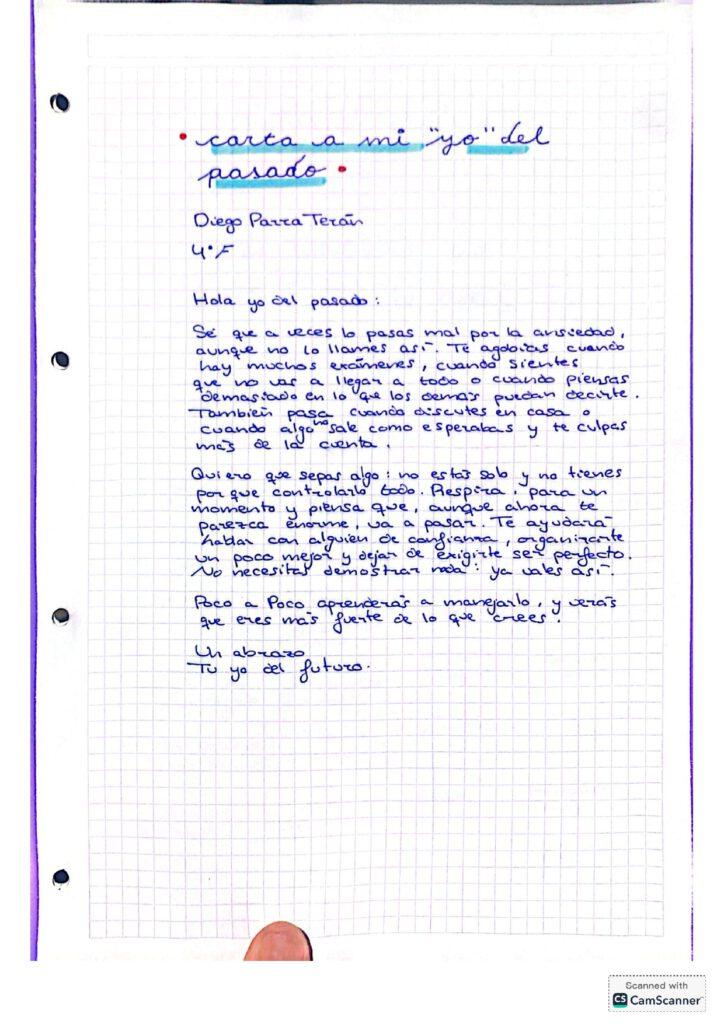 • carta a mi "yo" del
pasado •
Diego Parra Terán
4°F
Hola yo del pasado:
Sé que a veces lo pasas mal por la ansiedad,
aunque no lo llames así. Te agobias cuando
hay muchos exámenes, cuando sientes
que no vas a llegar a todo o cuando piensas
demasiado en lo que los demás puedan decirte.
También pasa cuando discutes en casa o
cuando algo no sale como esperabas y te culpas
más de la cuenta.
Quiero que sepas algo: no estás solo y no tienes
por que controlarlo todo. Respira, para un
momento y piensa que, aunque ahora te
parezca enorme, va a pasar. Te ayudará
hablar con alguien de confianza, organizarte
un poco mejor y dejar de exigirte ser perfecto.
No necesitas demostrar nada: ya vales así.
Poco a Poco aprenderás a manejarlo, y verás
que eres más fuerte de lo que crees.
Un abrazo
Tu yo del futuro.
Scanned with
CS CamScanner